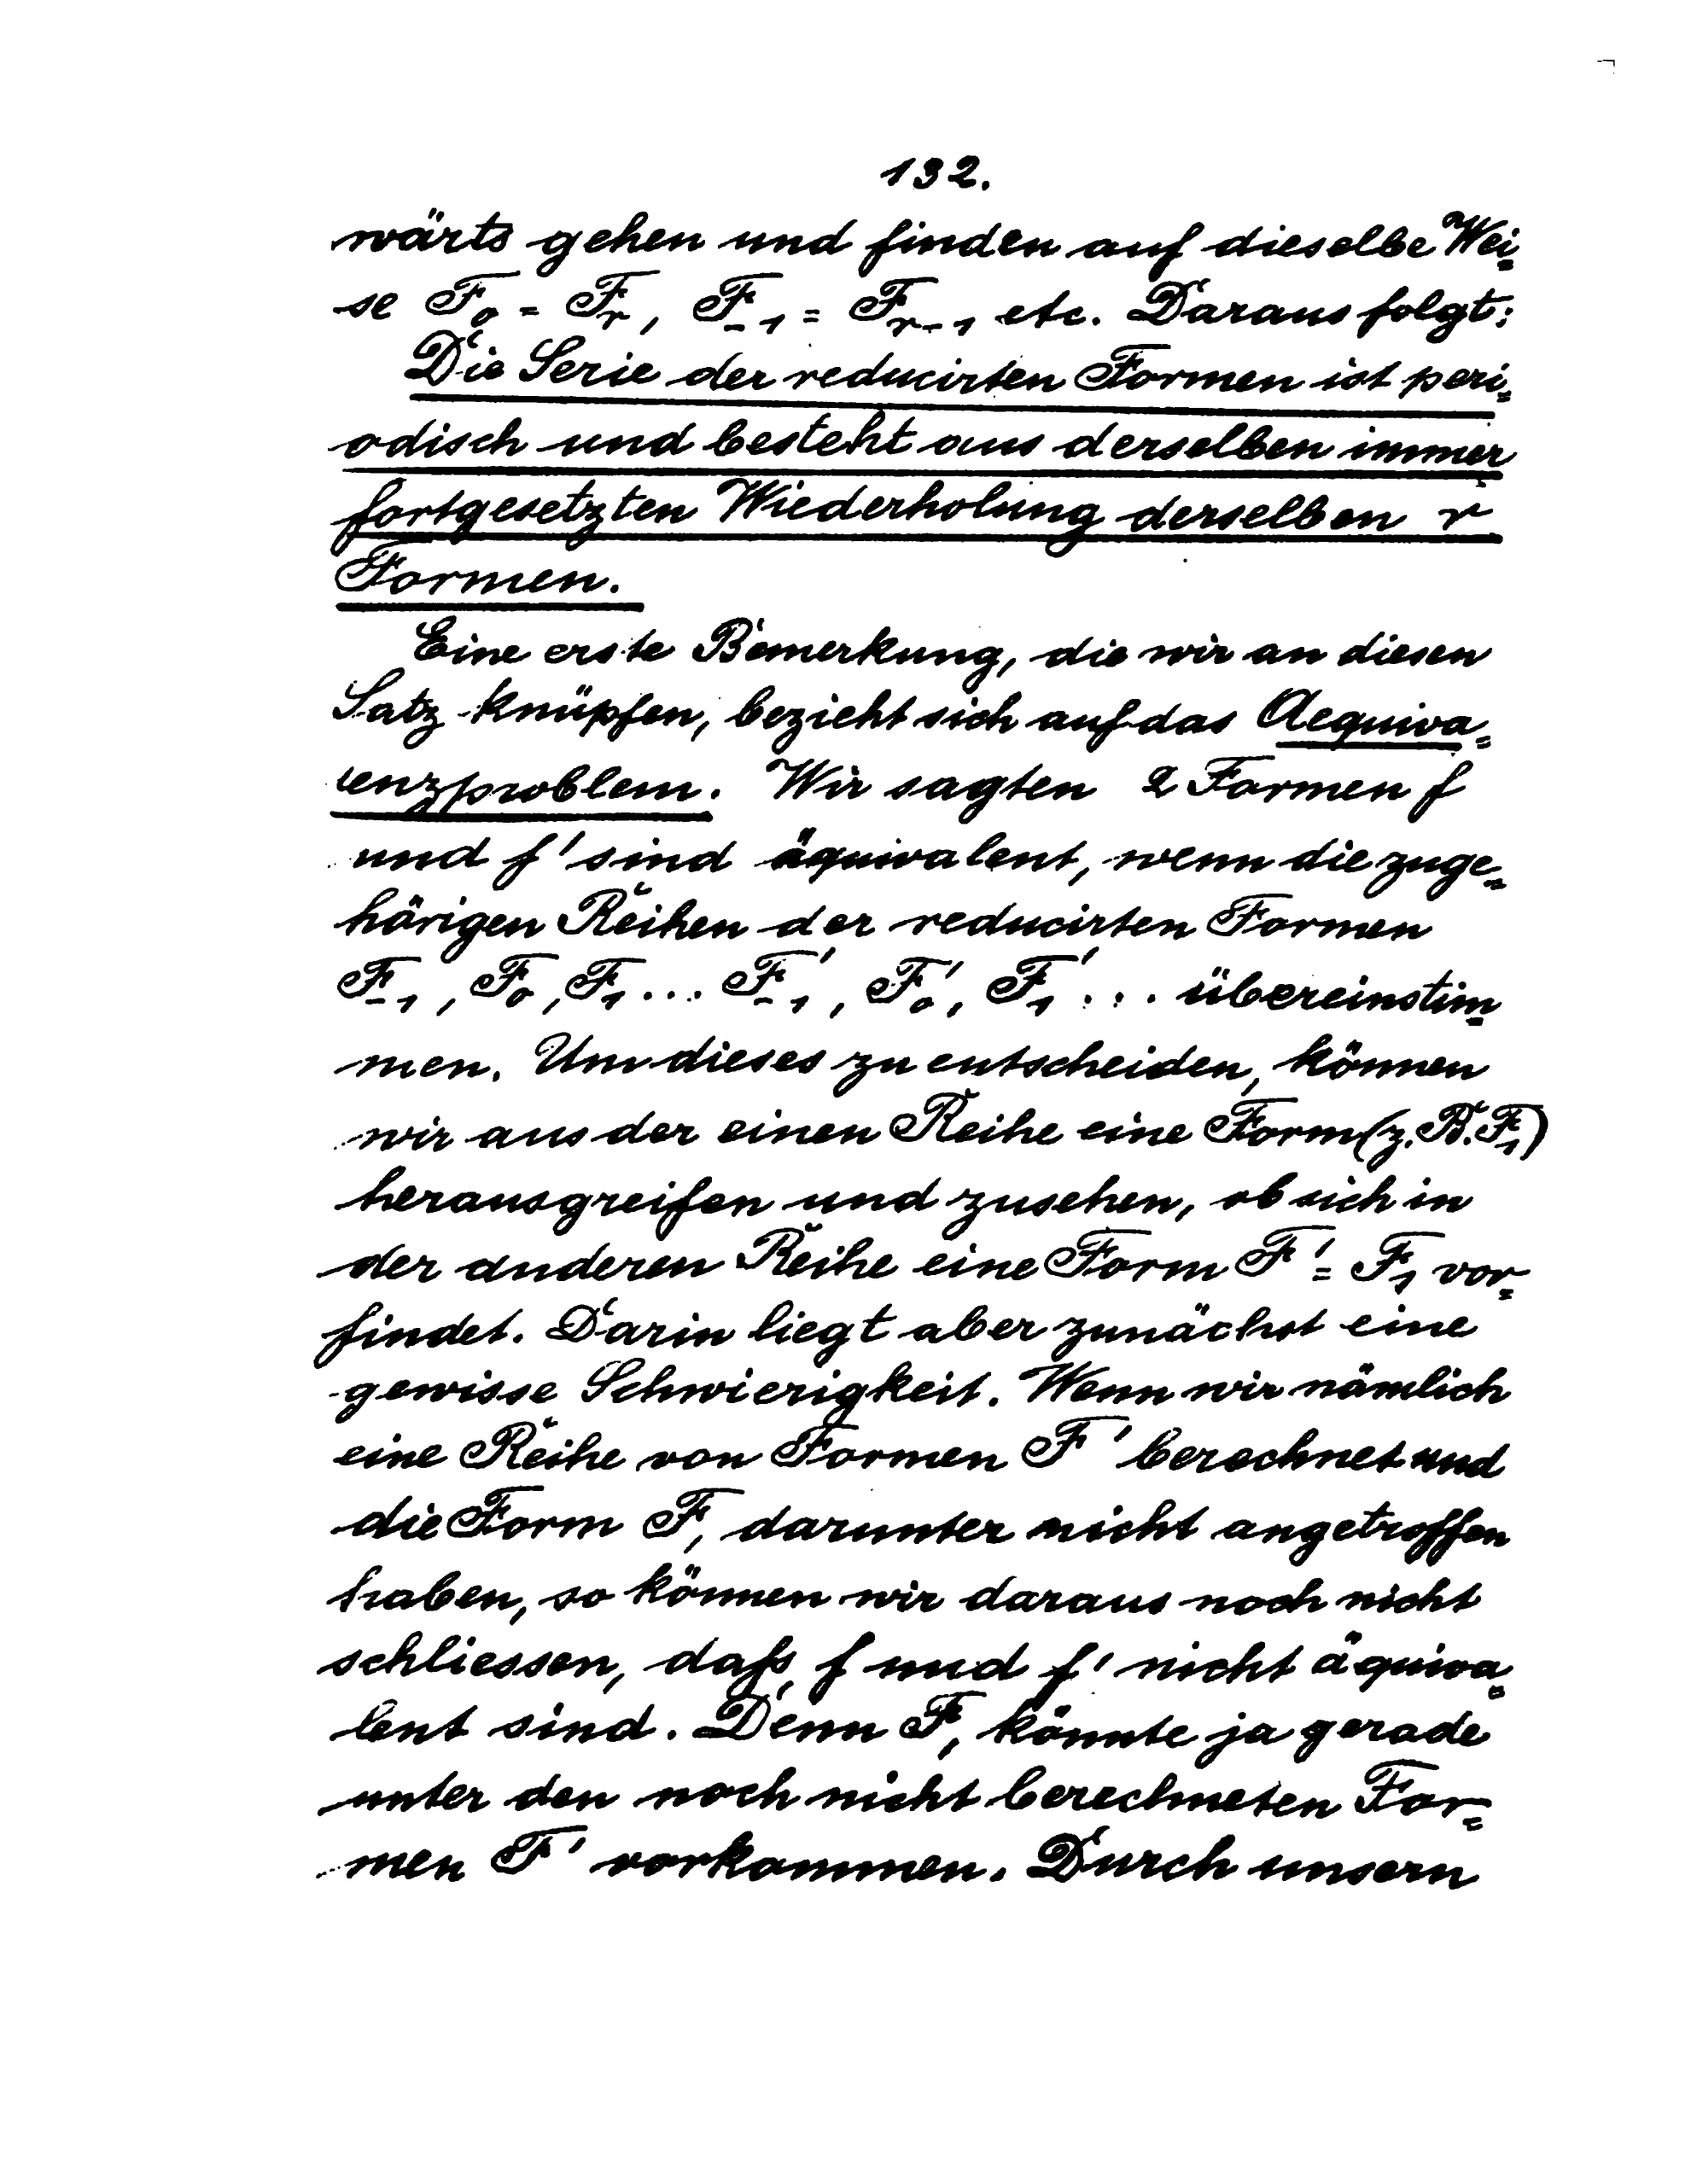 132.
wärts gehen und finden auf dieselbe Wei-
se F₀ = Fᵣ, F₋₁ = Fᵣ₋₁ etc. Daraus folgt:
Die Serie der reducirten Formen ist peri-
odisch und besteht aus derselben immer
fortgesetzten Wiederholung derselben r
Formen.
Eine erste Bemerkung, die wir an diesen
Satz knüpfen, bezieht sich auf das Aequiva-
lenzproblem. Wir sagten 2 Formen f
und f' sind äquivalent, wenn die zuge-
hörigen Reihen der reducirten Formen
F₋₁, F₀, F₁ ... F'₋₁, F'₀, F'₁ ... übereinstim-
men. Um dieses zu entscheiden, können
wir aus der einen Reihe eine Form (z. B. F₁)
herausgreifen und zusehen, ob sich in
der anderen Reihe eine Form F' = F₁ vor-
findet. Darin liegt aber zunächst eine
gewisse Schwierigkeit. Wenn wir nämlich
eine Reihe von Formen F' berechnet und
die Form F₁ darunter nicht angetroffen
haben, so können wir daraus noch nicht
schliessen, daß f und f' nicht äquiva-
lent sind. Denn F₁ könnte ja gerade
unter den noch nicht berechneten For-
men F' vorkommen. Durch unsern